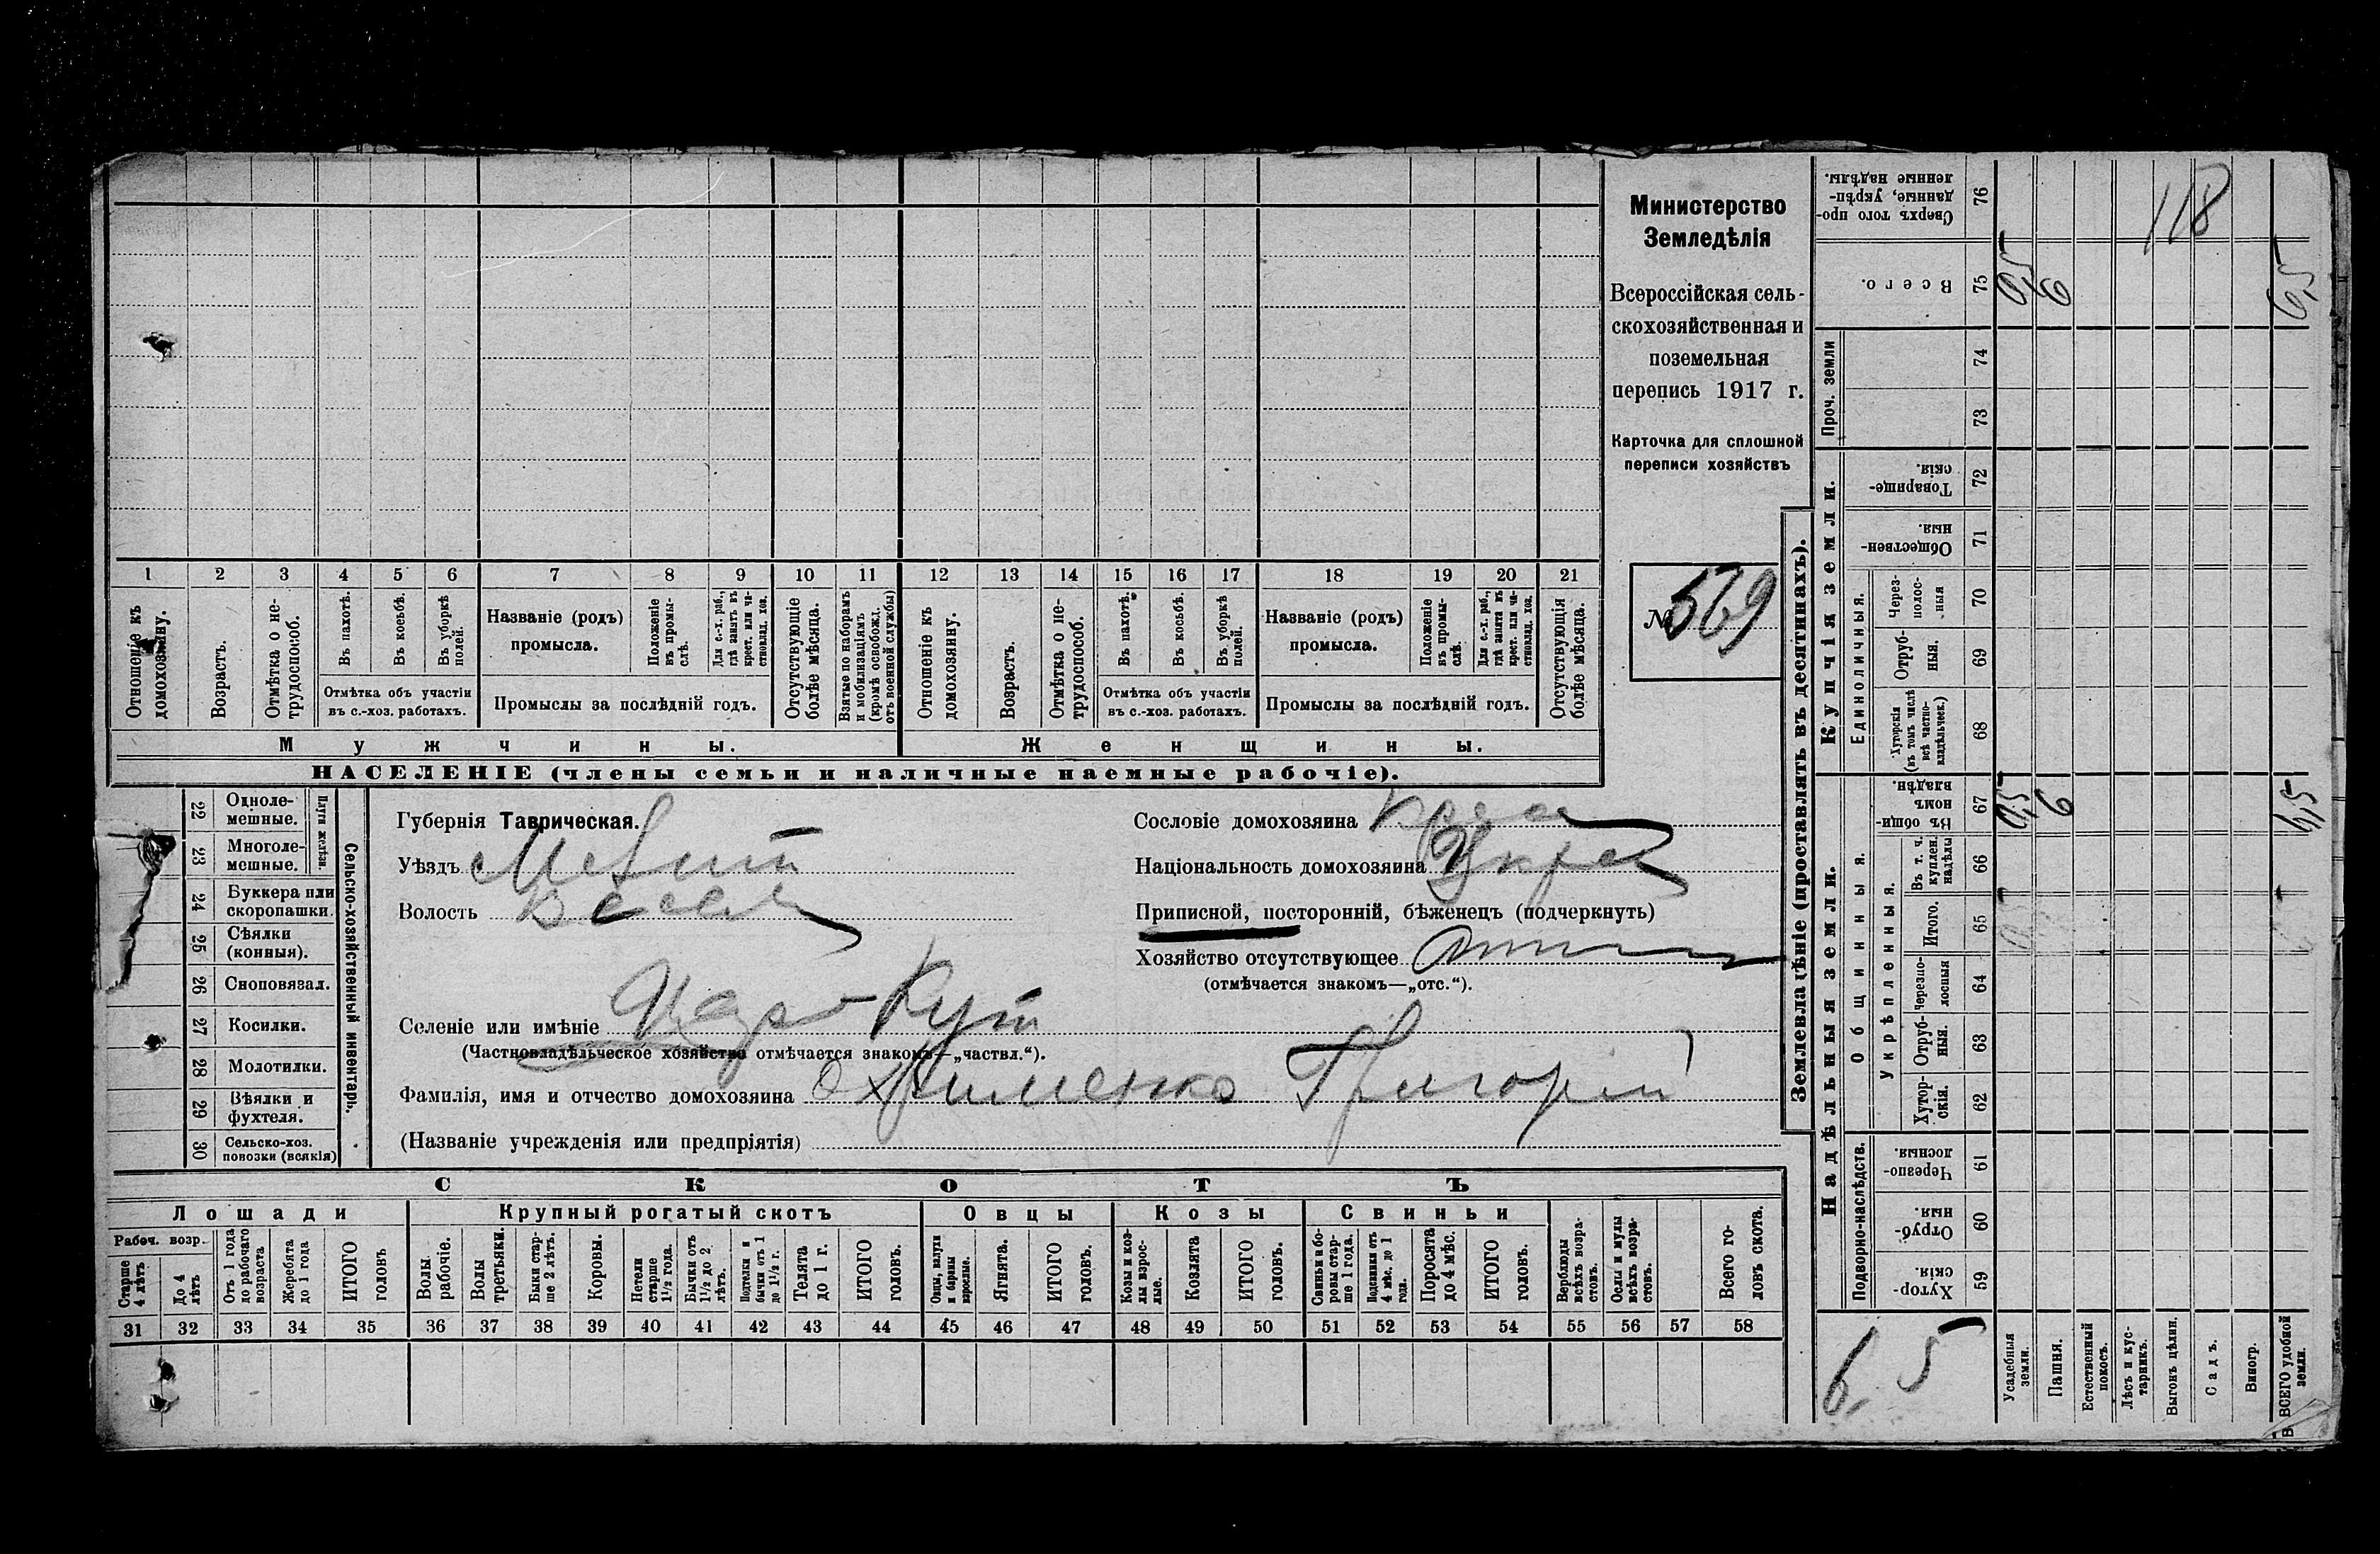 Министерство
Земледѣлія
Всероссійская сель-
скохозяйственная и
поземельная
перепись 1917 г.
Карточка для сплошной
переписи хозяйствъ
№ 569
1 2 3 4 5 6 7 8 9 10 11 12 13 14 15 16 17 18 19 20 21
Отношеніе къ домохозяину.
Возрастъ.
Отмѣтка о не-трудоспособ.
Въ пахотѣ.
Въ косьбѣ.
Въ уборкѣ полей.
Отмѣтка объ участіи
въ с.-хоз. работахъ.
Названіе (родъ)
промысла.
Положеніе въ промы-слѣ.
Для с.-х. раб., гдѣ занятъ въ крест. или ча-стновлад. хоз.
Промыслы за послѣдній годъ.
Отсутствующіе болѣе мѣсяца.
Взятые по наборамъ и мобилизаціямъ (кромѣ освобожд. отъ военной службы)
Отношеніе къ домохозяину.
Возрастъ.
Отмѣтка о не-трудоспособ.
Въ пахотѣ.
Въ косьбѣ.
Въ уборкѣ полей.
Отмѣтка объ участіи
въ с.-хоз. работахъ.
Названіе (родъ)
промысла.
Положеніе въ промы-слѣ.
Для с.-х. раб., гдѣ занята въ крест. или ча-стновлад. хоз.
Промыслы за послѣдній годъ.
Отсутствующія болѣе мѣсяца.
Мужчины. Женщины.
НАСЕЛЕНІЕ (члены семьи и наличные наемные рабочіе).
Сельско-хозяйственный инвентарь.
Плуги желѣзн.
22 Одноле-мешные.
23 Многоле-мешные.
24 Буккера или скоропашки.
25 Сѣялки (конныя).
26 Сноповязал.
27 Косилки.
28 Молотилки.
29 Вѣялки и фухтеля.
30 Сельско-хоз. повозки (всякія)
Губернія Таврическая.
Уѣздъ Мелит
Волость Весел
Селеніе или имѣніе Царо Кут
(Частновладѣльческое хозяйство отмѣчается знакомъ—„частвл.“).
Фамилія, имя и отчество домохозяина Охрименко Григорій
(Названіе учрежденія или предпріятія)
Сословіе домохозяина Крес
Національность домохозяина Укра
Приписной, посторонній, бѣженецъ (подчеркнуть)
Хозяйство отсутствующее
(отмѣчается знакомъ—„отс.“).
СКОТЪ
Лошади Крупный рогатый скотъ Овцы Козы Свиньи
Рабоч. возр.
Старше 4 лѣтъ
До 4 лѣтъ
Отъ 1 года до рабочаго возраста
Жеребята до 1 года
ИТОГО головъ
Волы рабочіе.
Волы третьяки.
Быки стар-ше 2 лѣтъ.
Коровы.
Нетели старше 1½ года.
Бычки отъ 1½ до 2 лѣтъ.
Подтелки и бычки отъ 1 до 1½ г.
Телята до 1 г.
ИТОГО головъ.
Овцы, валухи и бараны взрослые.
Ягнята.
ИТОГО головъ.
Козы и коз-лы взрос-лые.
Козлята
ИТОГО головъ.
Свиньи и бо-ровы стар-ше 1 года.
Подсвинки отъ 4 мѣс. до 1 года.
Поросята до 4 мѣс.
ИТОГО головъ.
Верблюды всѣхъ возра-стовъ.
Ослы и мулы всѣхъ возра-стовъ.
Всего го-ловъ скота.
31 32 33 34 35 36 37 38 39 40 41 42 43 44 45 46 47 48 49 50 51 52 53 54 55 56 57 58
Землевладѣніе (проставлять въ десятинахъ).
Надѣльныя земли.
Купчія земли.
Проч. земли
Подворно-наслѣдств.
Общинныя.
Укрѣпленныя.
Единоличныя.
Хутор-скія. 59
Отруб-ныя. 60
Черезпо-лосныя. 61
Хутор-скія. 62
Отруб-ныя. 63
Черезпо-лосныя 64
Итого. 65
Въ т. ч. куплен. надѣлы 66
Въ общи-номъ владѣн. 67
Хуторскія (въ томъ числѣ всѣ частно-владѣльческ.) 68
Отруб-ныя. 69
Через-полос-ныя 70
Обществен-ныя. 71
Товарище-скія. 72
73
74
Всего. 75
Сверхъ того про-данные, укрѣп-ленные надѣлы. 76
Усадебныя земли. 0,5 0,5
Пашня. 6 6
Естественный покосъ.
Лѣсъ и кус-тарникъ.
Выгонъ цѣлин.
Садъ.
Виногр.
ВСЕГО удобной земли. 6,5 6,5
118
6,5